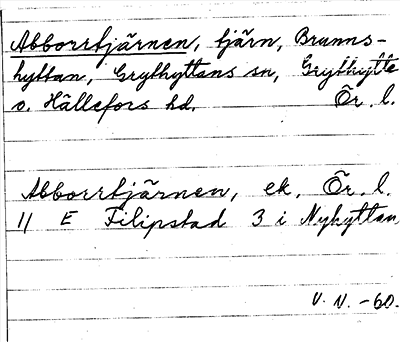 Abborrtjärnen, tjärn, Brunns-
hyttan, Grythyttans sn, Grythytte
o. Hällefors hd. Ör. l.
Abborrtjärnen, ek. Ör. l.
11 E Filipstad 3 i Nyhyttan
V. V. -60.